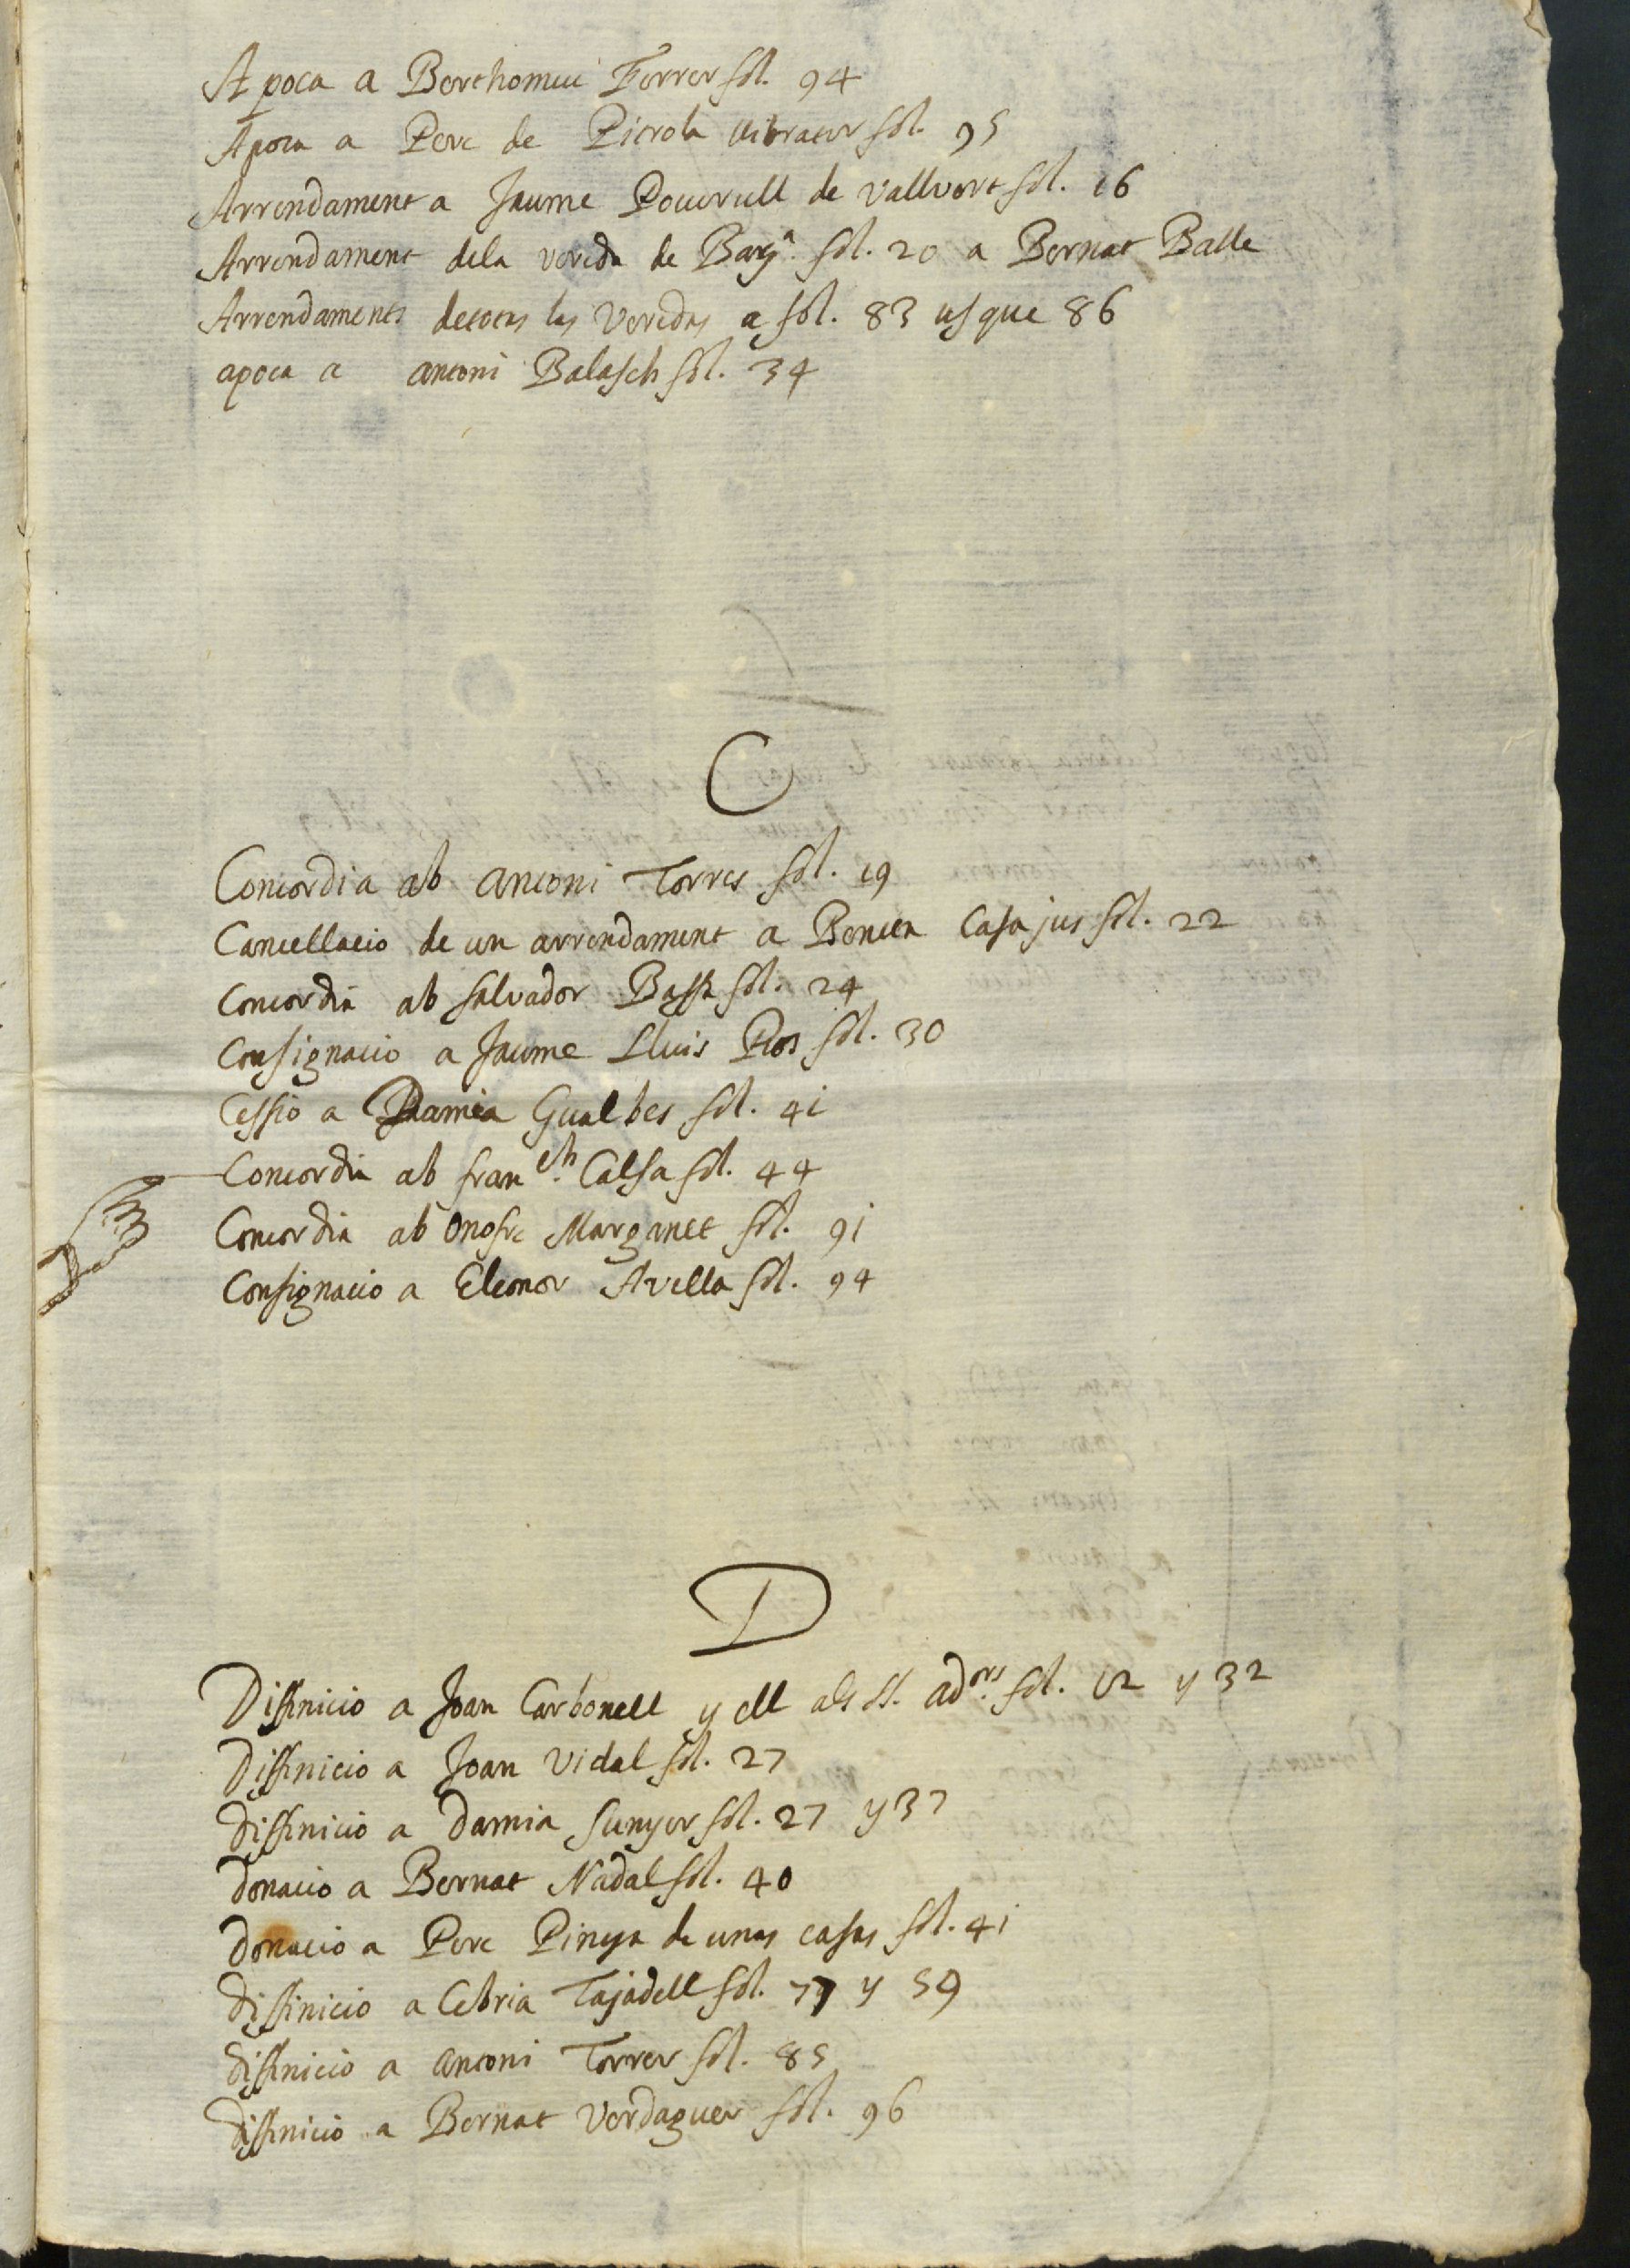 Apoca a Berthomeu Ferrer fol. 94
Apoca a Pere de Pierola llibrater fol. 95
Arrendament a Jaume Pouerull de Vallvert fol. 16
Arrendament dela vereda de Barna. fol. 20 a Bernat Balle
Arrendaments detotas las Veredas a fol. 83 usque 86
apoca a antoni Balasch fol. 34
C
Concordia ab antoni Torres fol. 19
Cancellacio de un arrendament a Benet Casajus fol. 22
Concordia ab salvador Bassa fol. 24
Consignacio a Jaume Lluis Ros fol. 30
Cessio a Damia Gualbes fol. 41
Concordia ab franch. Calsa fol. 44
Concordia ab Onofre Marganet fol. 91
Consignacio a Eleonor Avella fol. 94
D
Diffinicio a Joan Carbonell y ell als SS. adors. fol. 12 y 32
Diffinicio a Joan Vidal fol. 27
diffinicio a Damia Sunyer fol. 27 y 37
donacio a Bernat Nadal fol. 40
donacio a Pere Pinya de unas casas fol. 41
diffinicio a Cebria Tajadell fol. 77 y 59
diffinicio a antoni Torrer fol. 85
diffinicio a Bernat Verdaguer fol. 96